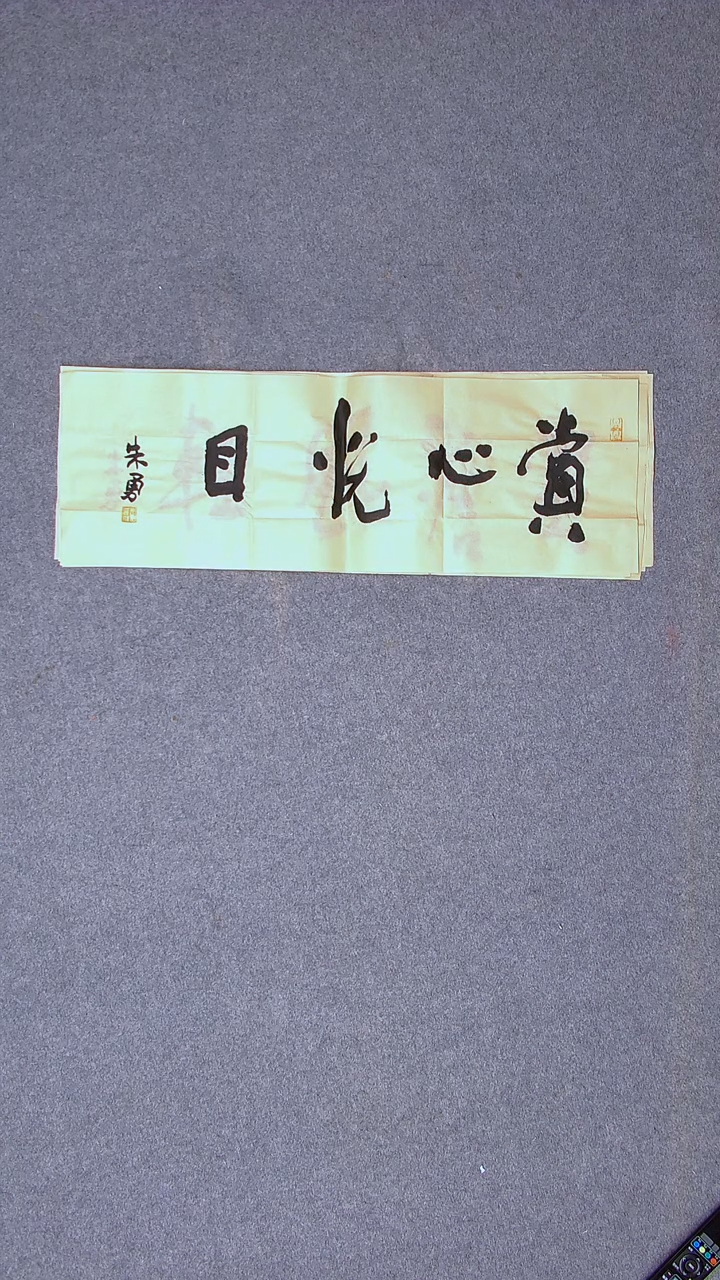 賞心悦目
朱勇